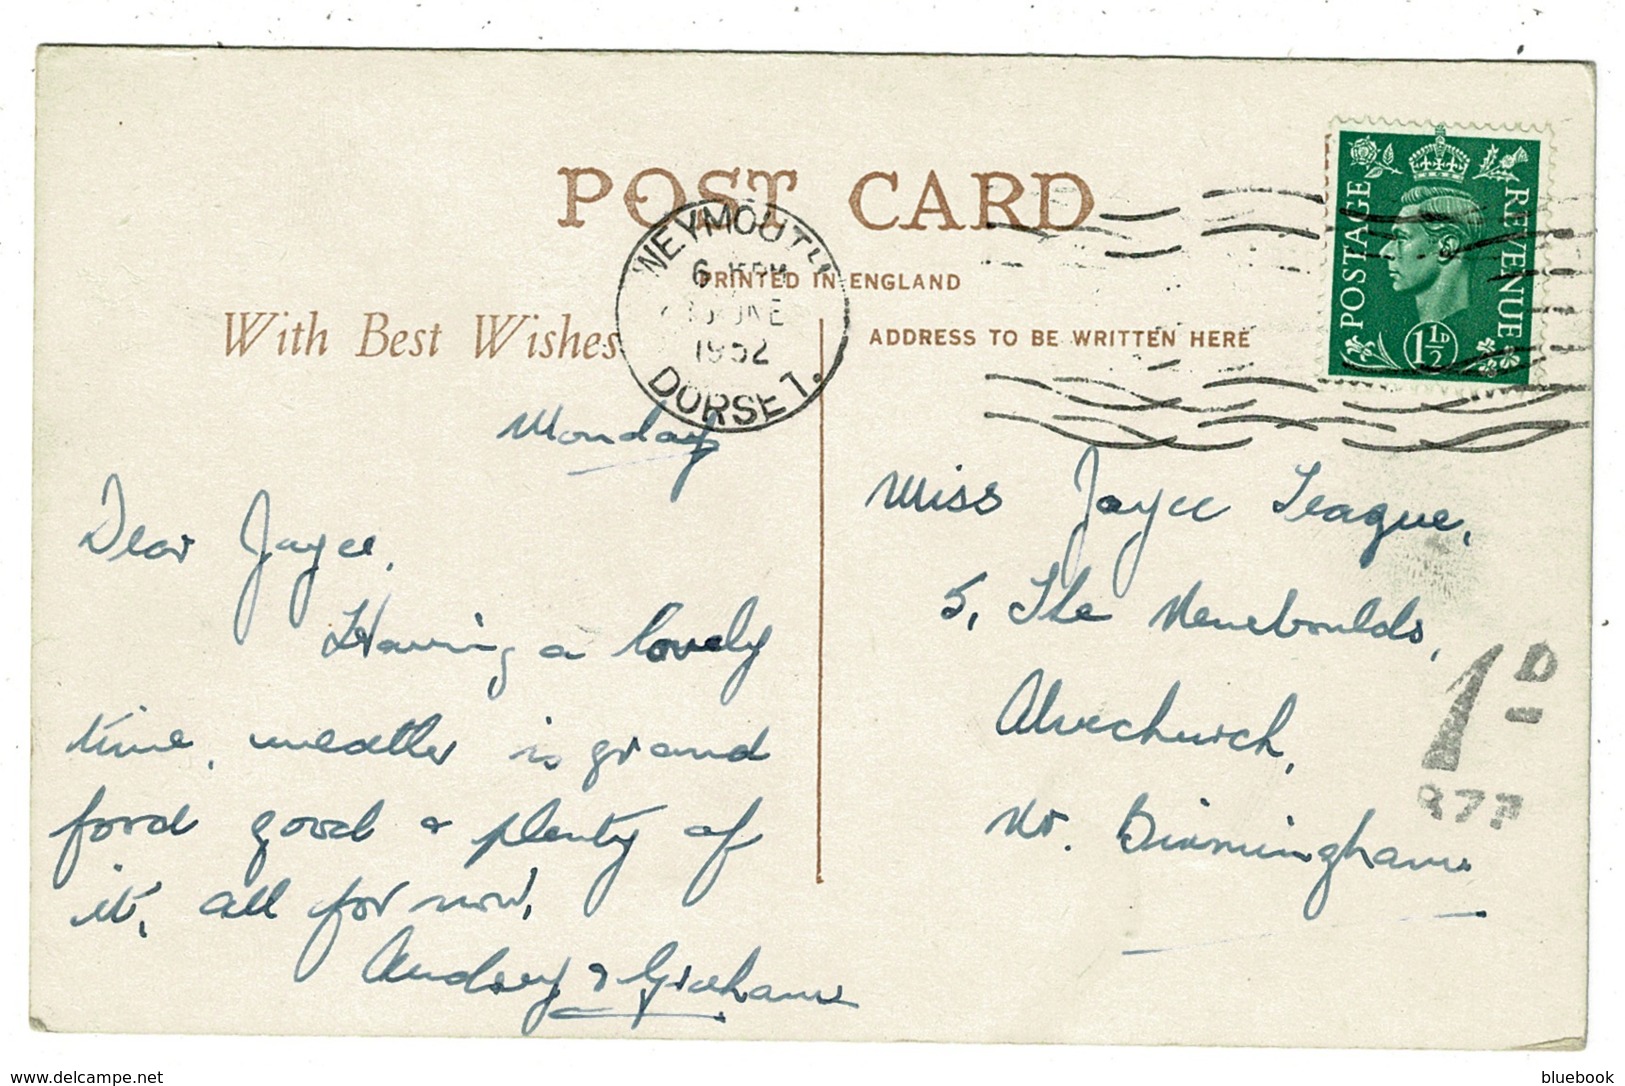 POST CARD
PRINTED IN ENGLAND
With Best Wishes
ADDRESS TO BE WRITTEN HERE
WEYMOUTH
6 15 PM
JUNE
1952
DORSET.
POSTAGE
REVENUE
1½D
Monday
Dear Joyce,
Having a lovely
time, weather is grand
food good & plenty of
it, all for now,
Audrey & Graham
Miss Joyce Teague,
5, The
Alvechurch,
Nr. Birmingham
1D
delcampe.net
bluebook